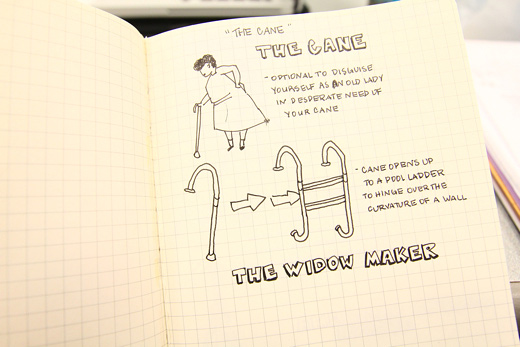 "THE CANE"
THE CANE
- OPTIONAL TO DISGUISE
YOURSELF AS AN OLD LADY
IN DESPERATE NEED OF
YOUR CANE
- CANE OPENS UP
TO A POOL LADDER
TO HINGE OVER THE
CURVATURE OF A WALL
THE WIDOW MAKER